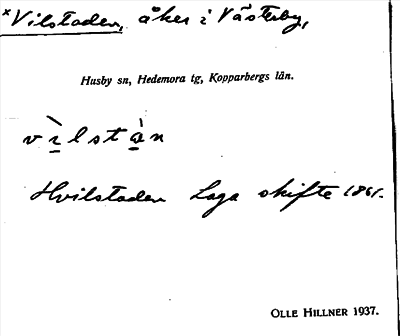 ×Vilstaden, åker i Västerby,
Husby sn, Hedemora tg, Kopparbergs län.
vı̲̀lstà̲n
Hvilstaden Laga skifte 1861.
OLLE HILLNER 1937.